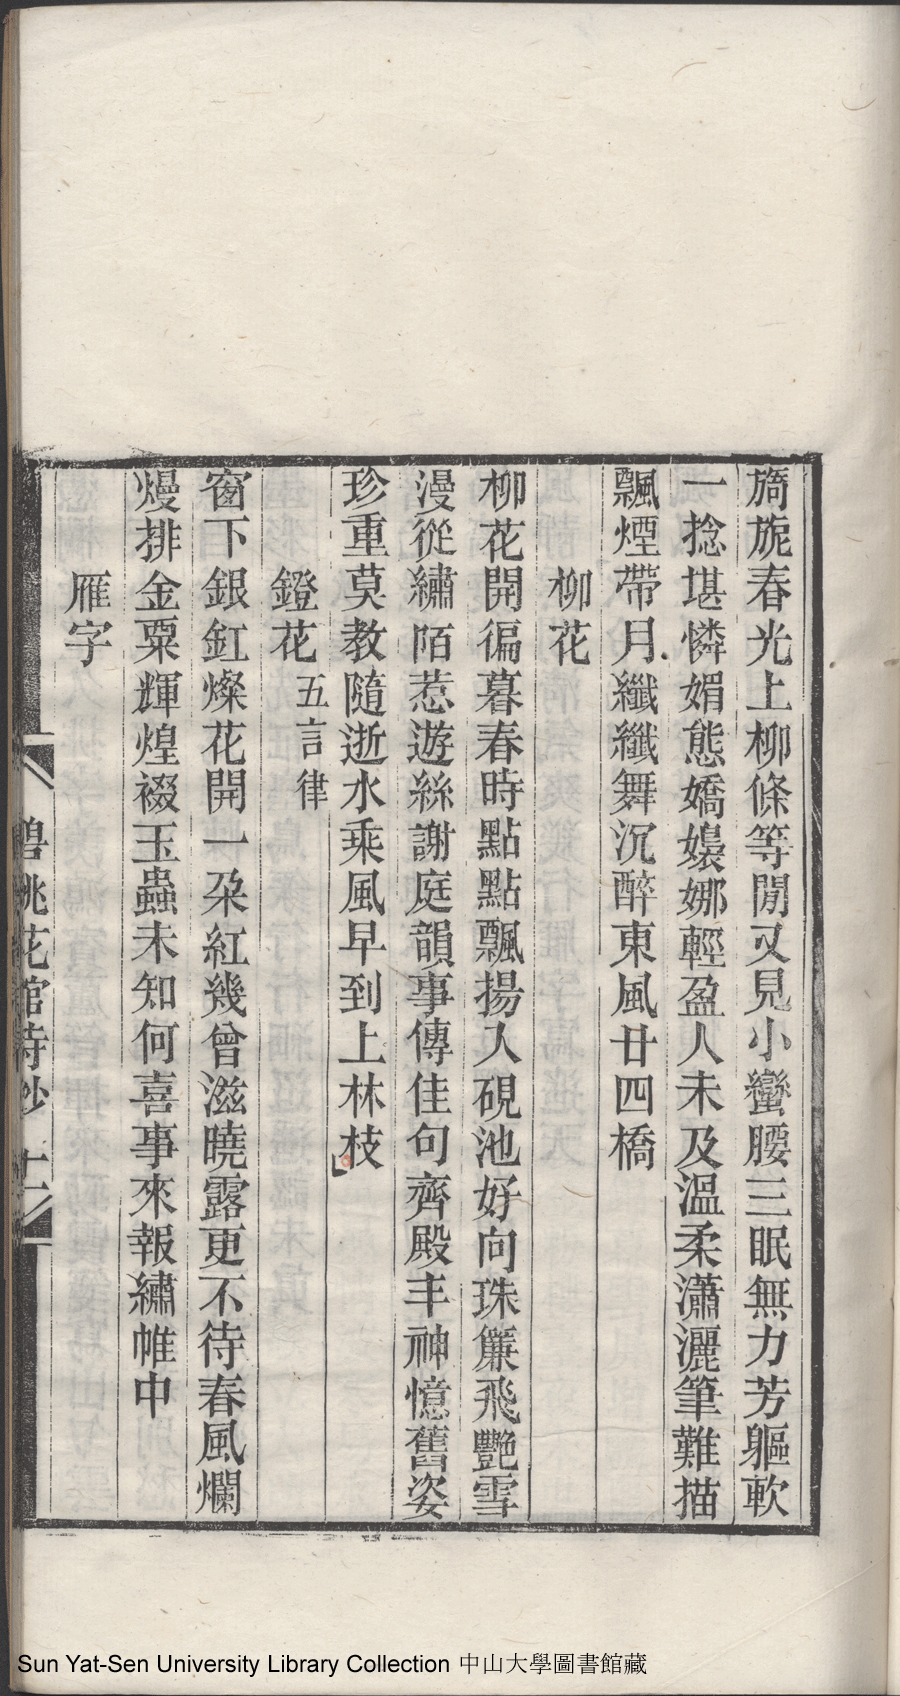 旖旎春光上柳條等閒又見小蠻腰三眠無力芳軀軟
一捻堪憐媚態嬌嬝娜輕盈人未及溫柔瀟灑筆難描
飄煙帶月纖纖舞沉醉東風廿四橋
柳花
柳花開徧暮春時點點飄揚入硯池好向珠簾飛艷雪
漫從繡陌惹遊絲謝庭韻事傳佳句齊殿丰神憶舊姿
珍重莫教隨逝水乘風早到上林枝
鐙花五言律
窗下銀釭燦花開一朶紅幾曾滋曉露更不待春風爛
熳排金粟輝煌綴玉蟲未知何喜事來報繡帷中
雁字
碧桃花館詩鈔
Sun Yat-Sen University Library Collection 中山大學圖書館藏